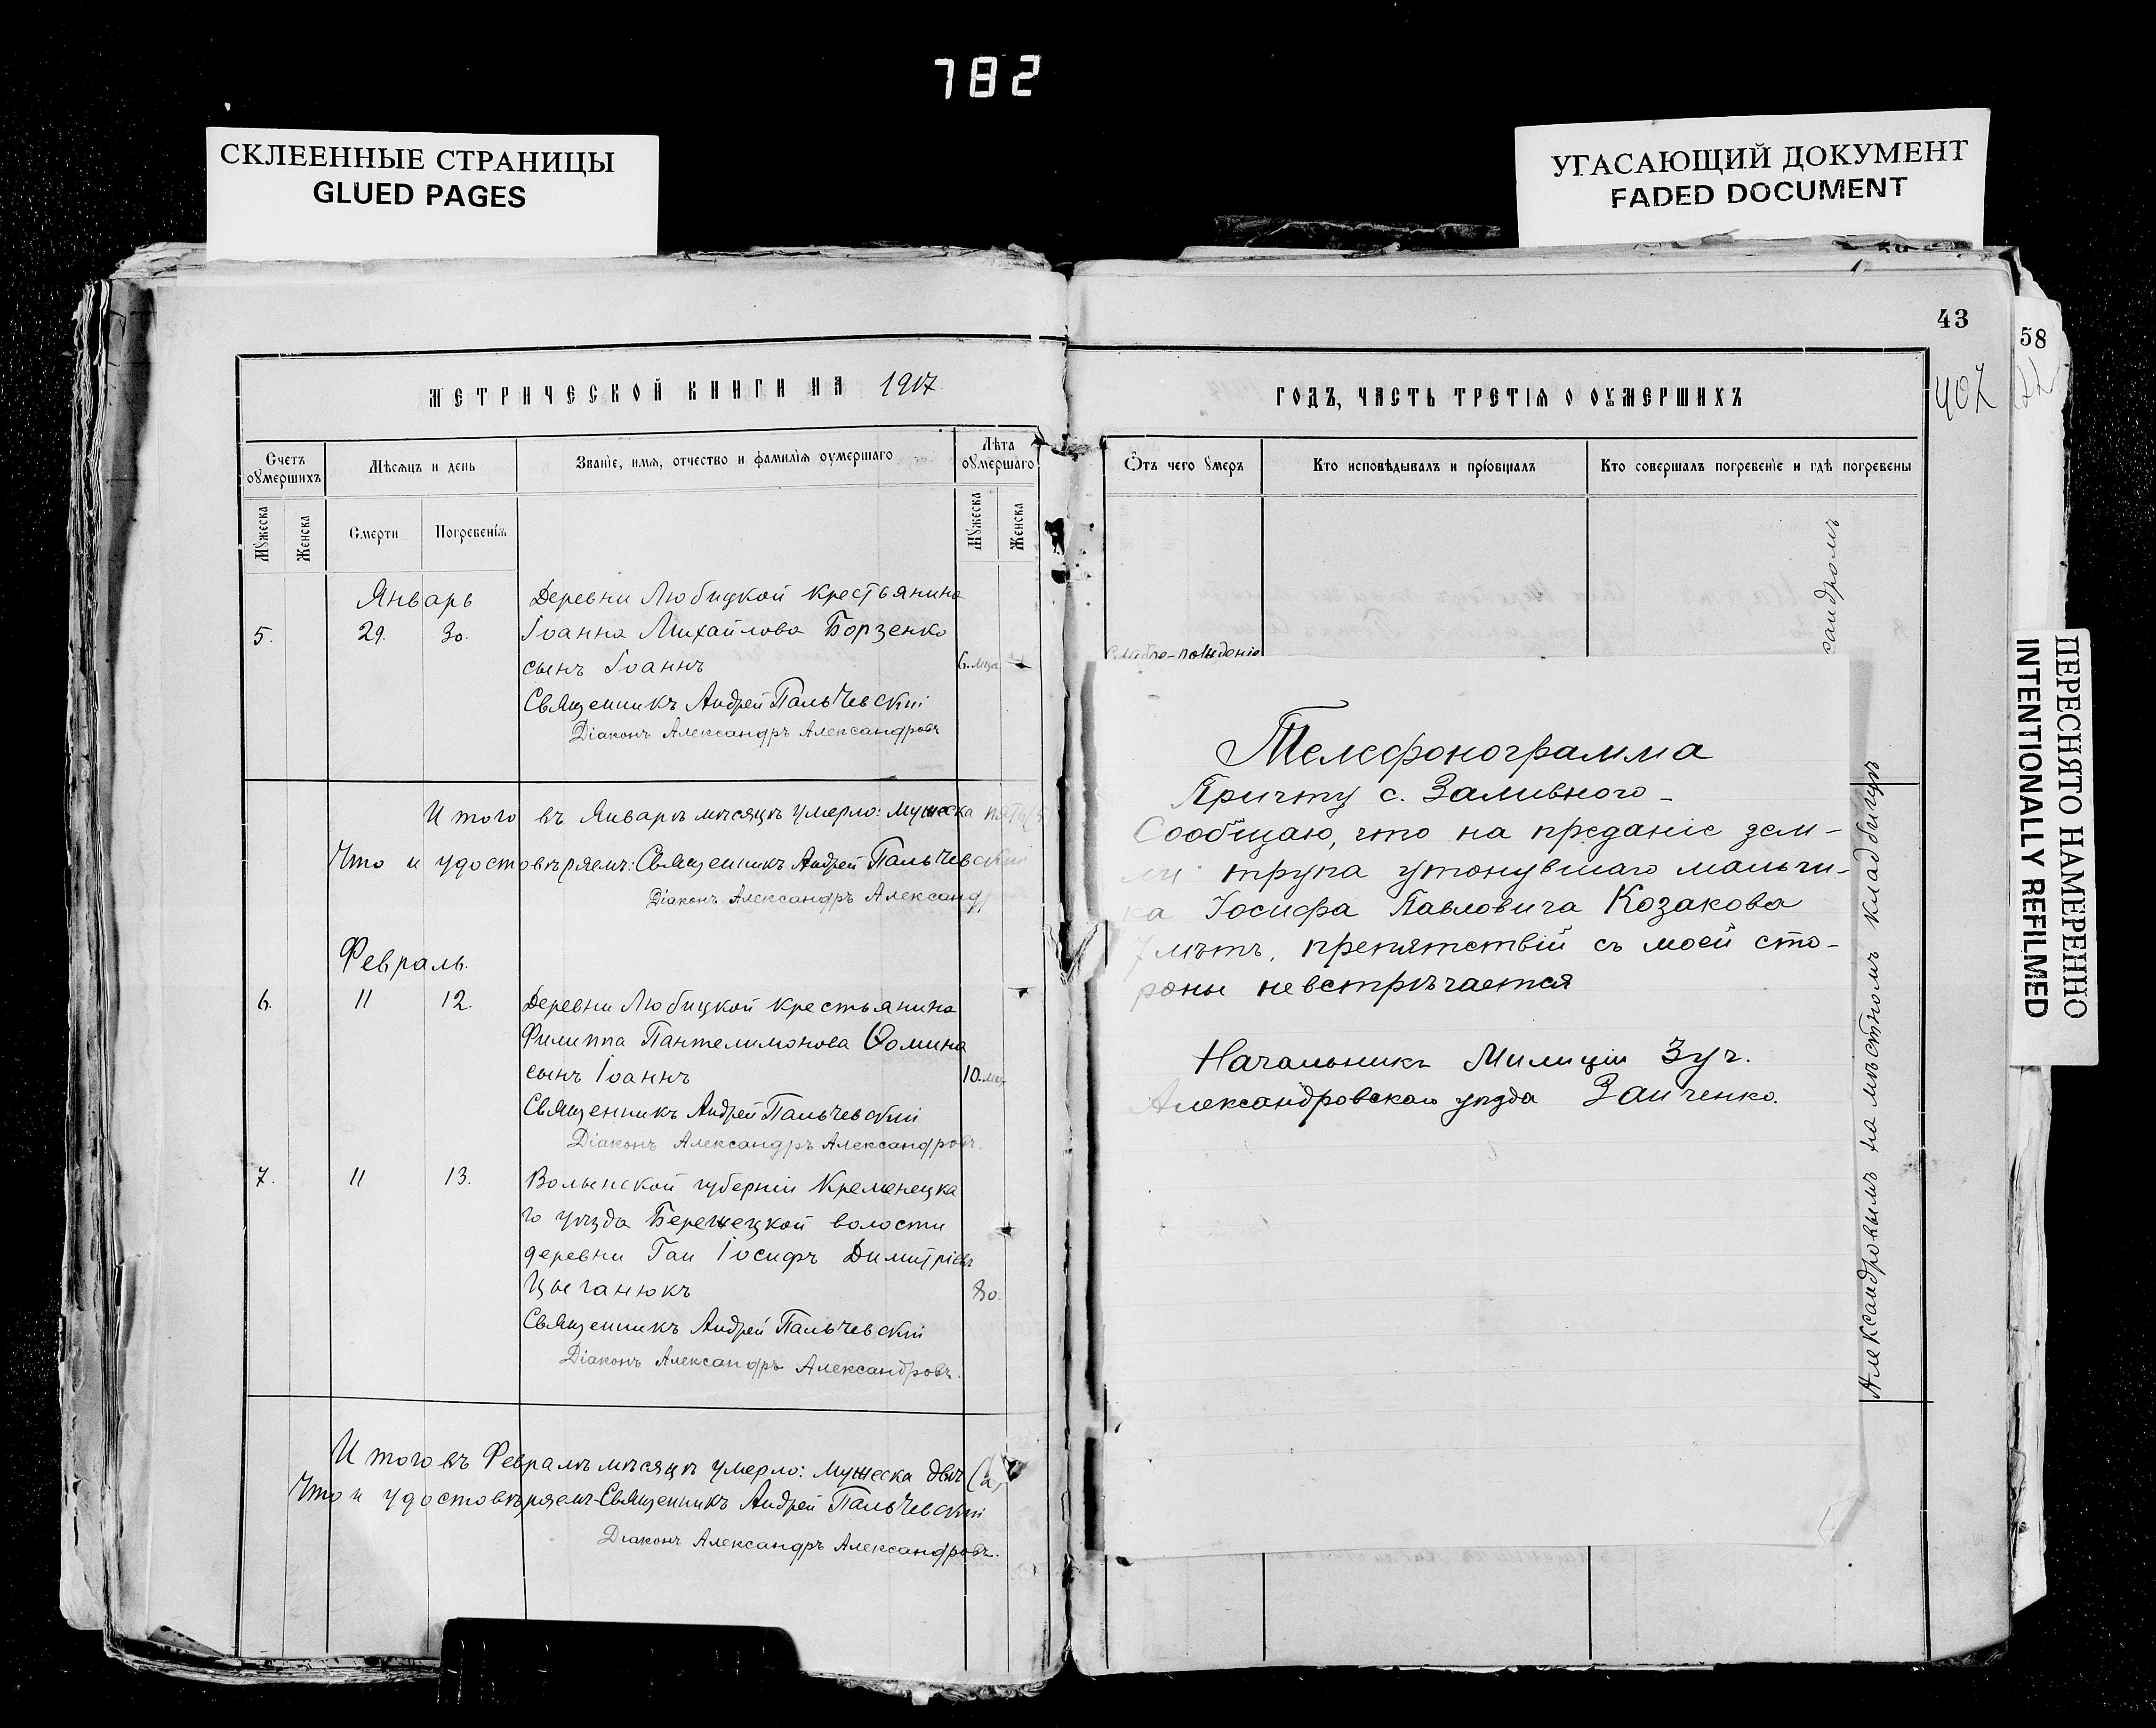 782
СКЛЕЕННЫЕ СТРАНИЦЫ
GLUED PAGES
УГАСАЮЩИЙ ДОКУМЕНТ
FADED DOCUMENT
43
58
407
МЕТРИЧЕСКОЙ КНИГИ НА 1917
ГОДЪ, ЧАСТЬ ТРЕТІѦ О ОУМЕРШИХЪ
Счетъ оумершихъ
Мѣсѧцъ и день
Званіе, имѧ, отчество и фамиліѧ оумершаго
Лѣта оумершаго
Мꙋжеска
Женска
Смерти
Погребеніѧ
Мꙋжеска
Женска
Ѿтъ чего ꙋмеръ
Кто исповѣдывалъ и пріобщалъ
Кто совершалъ погребеніе и гдѣ погребены
Январь
5. 29. 30.
Деревни Любицкой крестьянина
Іоанна Михайлова Борзенко
сынъ Іоаннъ 6. мца
Священникъ Андрей Пальчевскій
Діаконъ Александръ Александровъ
Итого въ Январѣ мѣсяцѣ умерло: мужеска
Что и удостовѣряемъ: Священникъ Андрей Пальчевскій
Діаконъ Александръ Александ
Февраль.
6. 11 12.
Деревни Любицкой крестьянина
Филиппа Пантелимонова Ѳомина
сынъ Іоаннъ 10. мц.
Священникъ Андрей Пальчевскій
Діаконъ Александръ Александровъ.
7. 11 13.
Волынской губерніи Кременецка
го уѣзда Бережецкой волости
деревни Гаи Іосифъ Димитріевъ
Цыганюкъ 80.
Священникъ Андрей Пальчевскій
Діаконъ Александръ Александровъ.
Итого въ Февралѣ мѣсяцѣ умерло: мужеска двое (2)
Что и удостовѣряемъ Священникъ Андрей Пальчевскій
Діаконъ Александръ Александровъ.
Телефонограмма
Причту с. Заливного –
Сообщаю, что на преданіе зем–
ли трупа утонувшаго мальчи–
ка Іосифа Павловича Козакова
7 лѣтъ, препятствій съ моей сто–
роны невстрѣчается
Начальникъ Милиціи 3 уч.
Александровскаго уѣзда Заиченко.
Александровымъ на мѣстномъ кладбищѣ
ПЕРЕСНЯТО НАМЕРЕННО
INTENTIONALLY REFILMED